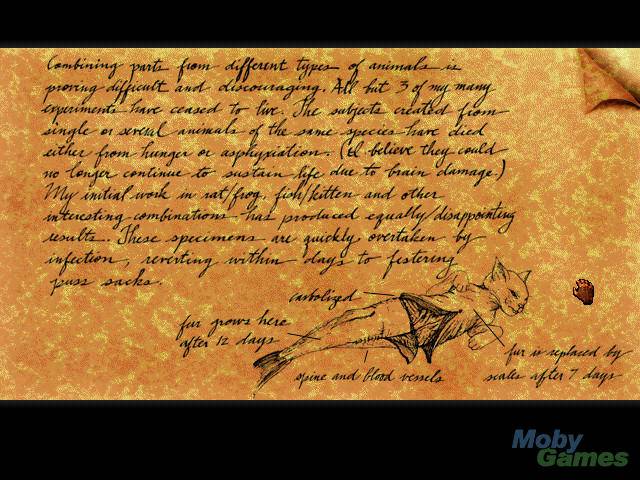 Combining parts from different types of animals is
proving difficult and discouraging. All but 3 of my many
experiments have ceased to live. The subjects created from
single or several animals of the same species have died
either from hunger or asphyxiation. (I believe they could
no longer continue to sustain life due to brain damage.)
My initial work in rat/frog, fish/kitten and other
interesting combinations has produced equally disappointing
results. These specimens are quickly overtaken by
infection, reverting within days to festering
puss sacks.
carbolized
fur grows here
after 12 days
spine and blood vessels
fur is replaced by
scales after 7 days
Moby
Games